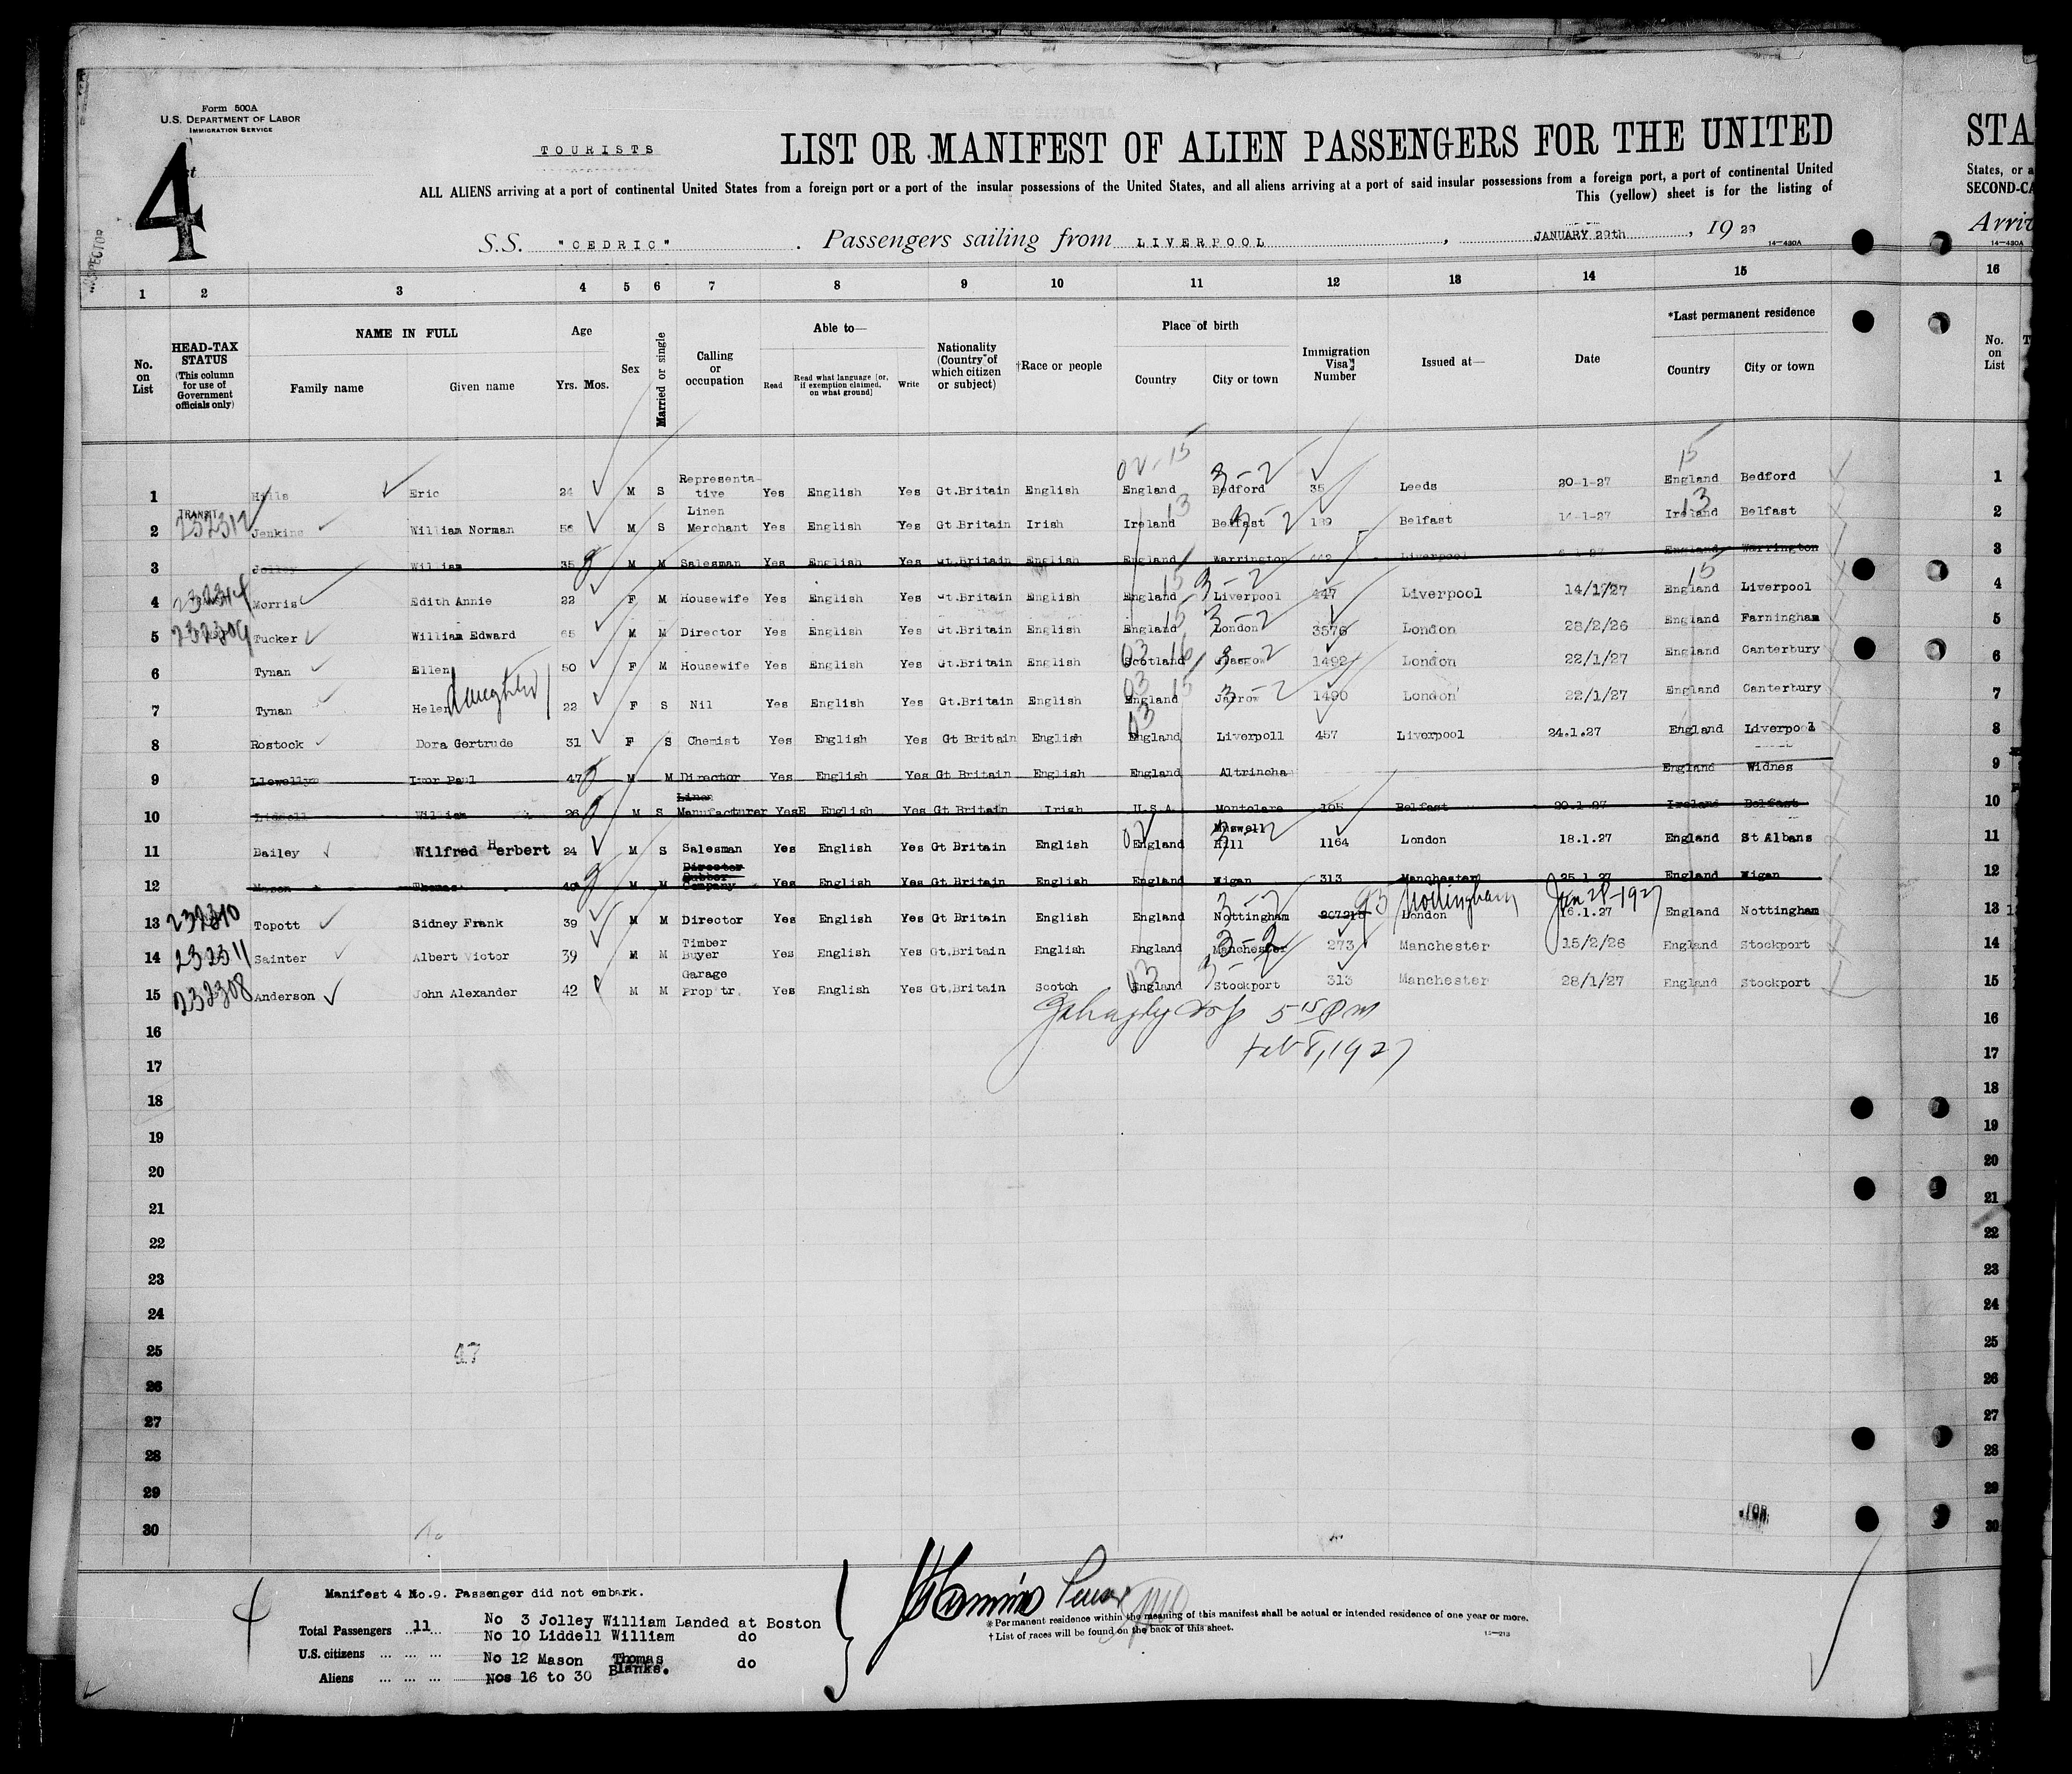 Form 500A
U.S. DEPARTMENT OF LABOR
IMMIGRATION SERVICE
4
TOURISTS
LIST OR MANIFEST OF ALIEN PASSENGERS FOR THE UNITED
STA
ALL ALIENS arriving at a port of continental United States from a foreign port or a port of the insular possessions of the United States, and all aliens arriving at a port of said insular possessions from a foreign port, a port of continental United
States, or a
This (yellow) sheet is for the listing of
SECOND-CA
S.S. "CEDRIC". Passengers sailing from LIVERPOOL, JANUARY 29th, 19 29
Arriv
14-430A
14-430A
INSPECTOR
1 2 3 4 5 6 7 8 9 10 11 12 13 14 15 16
No. on List
HEAD-TAX STATUS (This column for use of Government officials only)
NAME IN FULL
Family name Given name
Age
Yrs. Mos.
Sex
Married or single
Calling or occupation
Able to—
Read Read what language (or, if exemption claimed, on what ground) Write
Nationality (Country of which citizen or subject)
†Race or people
Place of birth
Country City or town
Immigration Visa Number
Issued at—
Date
*Last permanent residence
Country City or town
No. on List
1 Hills Eric 24 M S Representative Yes English Yes Gt.Britain English England Bedford 35 Leeds 20-1-27 England Bedford 1
TRANSIT
2 232312 Jenkins William Norman 56 M S Linen Merchant Yes English Yes Gt.Britain Irish Ireland Belfast 189 Belfast 14-1-27 Ireland Belfast 2
3 Jolley William 35 M M Salesman Yes English Yes Gt.Britain English England Warrington 442 Liverpool England Warrington 3
4 Morris Edith Annie 22 F M Housewife Yes English Yes Gt.Britain English England Liverpool 447 Liverpool 14/1/27 England Liverpool 4
5 232309 Tucker William Edward 65 M M Director Yes English Yes Gt.Britain English England London 3576 London 28/2/26 England Farningham 5
6 Tynan Ellen 50 F M Housewife Yes English Yes Gt.Britain English Scotland Glasgow 1492 London 22/1/27 England Canterbury 6
7 Tynan Helen daughter 22 F S Nil Yes English Yes Gt.Britain English England Jarrow 1490 London 22/1/27 England Canterbury 7
8 Rostock Dora Gertrude 31 F S Chemist Yes English Yes Gt Britain English England Liverpoll 457 Liverpool 24.1.27 England Liverpool 8
9 Llewellyn Ivor Paul 47 M M Director Yes English Yes Gt Britain English England Altrincha England Widnes 9
10 Liddell William 26 M S Linen Manufacturer YesE English Yes Gt Britain Irish U.S.A. Montclare 105 Belfast 20.1.27 Ireland Belfast 10
11 Bailey Wilfred Herbert 24 M S Salesman Yes English Yes Gt Britain English England Muswell Hill 1164 London 18.1.27 England St Albans 11
12 Mason Thomas 49 M M Director Rubber Company Yes English Yes Gt Britain English England Wigan 313 Manchester 25.1.27 England Wigan 12
13 232310 Topott Sidney Frank 39 M M Director Yes English Yes Gt Britain English England Nottingham 207215 93 London Nottingham 16.1.27 Jan 28-1927 England Nottingham 13
14 232311 Sainter Albert Victor 39 M M Timber Buyer Yes English Yes Gt.Britain English England Manchester 273 Manchester 15/2/26 England Stockport 14
15 232308 Anderson John Alexander 42 M M Garage Prop'tr. Yes English Yes Gt.Britain Scotch England Stockport 313 Manchester 28/1/27 England Stockport 15
16 5 15 PM 16
17 Feb 8, 1927 17
18 18
19 19
20 20
21 21
22 22
23 23
24 24
25 25
26 26
27 27
28 28
29 29
30 30
Manifest 4 No.9. Passenger did not embark.
Total Passengers 11
No 3 Jolley William Landed at Boston
No 10 Liddell William do
U.S. citizens
No 12 Mason Thomas do
Aliens
Nos 16 to 30 Blanks.
*Permanent residence within the meaning of this manifest shall be actual or intended residence of one year or more.
†List of races will be found on the back of this sheet.